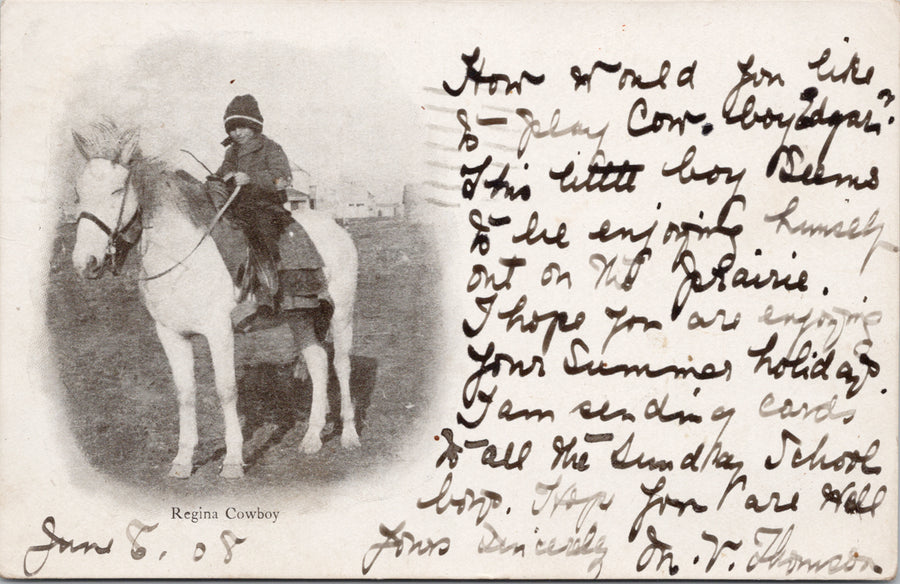 How would you like
to play Cow. boy Edgar?
This little boy seems
to be enjoying himself
out on the prairie.
I hope you are enjoying
your Summer holidays.
I am sending cards
to all the Sunday School
boys. Hope you are well
Yours Sincerely M. V. Thomson
Regina Cowboy
June 8. 08